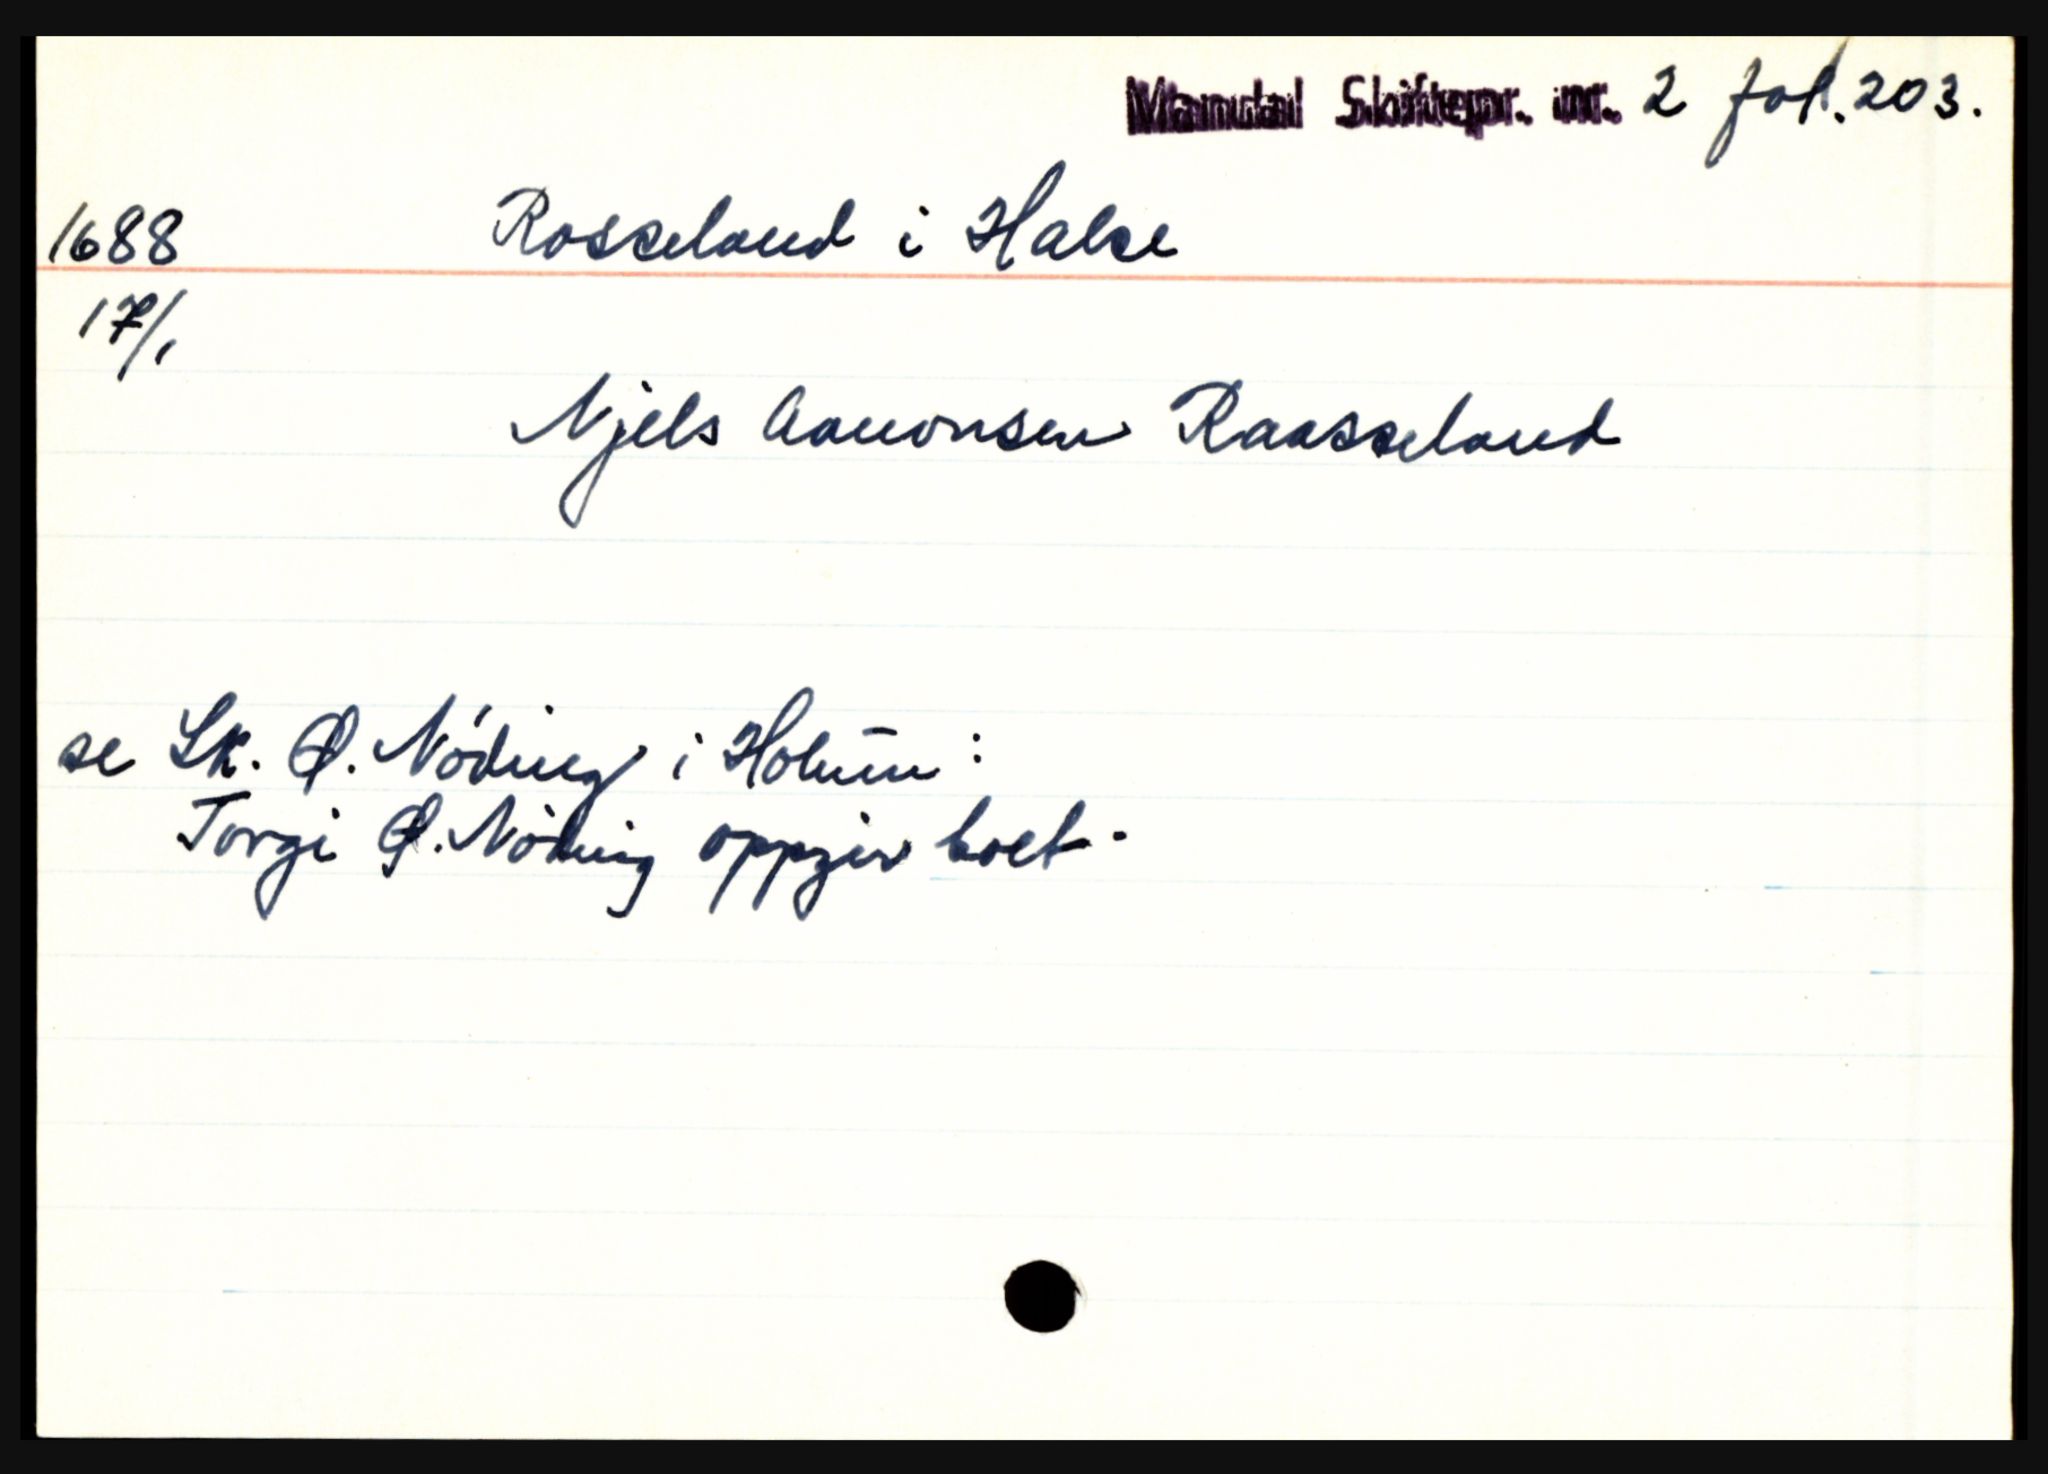 Mandal Skiftepr. nr. 2 fol. 203.
1688 Rosseland i Halse
17/1
Njels Aanonsen Raasseland
se Sk. Ø. Nöding i Holum:
Torgi Ø. Nöding oppgir boet.